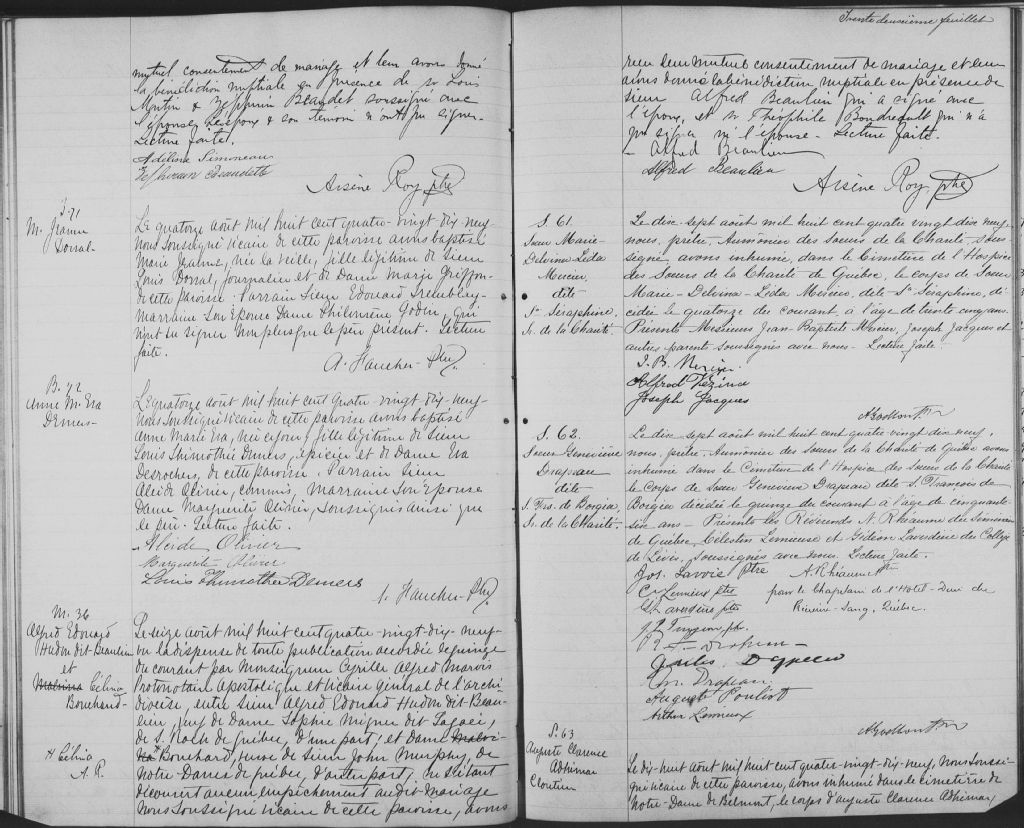 mutuel consentement de mariage et leur avons donné
la bénédiction nuptiale en présence de Sr Louis
Morin & Zéphirin Beaudet soussigné avec
l'épouse, l'époux & son témoin n'ont su signer.
Lecture faite.
Adéline Simoneau
Zephirin Beaudette
Arsène Roy ptre
B. 71
M. Jeanne
Dorval
Le quatorze août mil huit cent quatre-vingt-dix-neuf
Nous soussigné vicaire de cette paroisse avons baptisé
Marie Jeanne, née la veille, fille légitime de Sieur
Louis Dorval, journalier et de Dame Marie Griffon
de cette paroisse. Parrain Sieur Edouard Tremblay
Marraine son Epouse Dame Philomène Godin, qui
n'ont su signer non plus que le père présent. Lecture
faite.
A. Faucher Ptre
B. 72
Anne M. Eva
Demers
Le quatorze août mil huit cent quatre-vingt-dix-neuf
Nous soussigné vicaire de cette paroisse avons baptisé
Anne Marie Eva, née ce jour, fille légitime de Sieur
Louis Thimothée Demers, épicier et de Dame Eva
Desroches, de cette paroisse. Parrain Sieur
Alcide Olivier, commis, Marraine son Epouse
Dame Marguerite Olivier, soussignés ainsi que
le père. Lecture faite.
Alcide Olivier
Marguerite Olivier
Louis Thimothée Demers
A. Faucher Ptre
M. 36
Alfred Edouard
Hudon dit Beaulieu
et
Malvina Célina
Bouchard
+ Célina
A. R.
Le seize août mil huit cent quatre-vingt-dix-neuf
vu la dispense de toute publication accordée le quinze
du courant par Monseigneur Cyrille Alfred Marois
Protonotaire Apostolique et vicaire général de l'archi-
diocèse, entre Sieur Alfred Edouard Hudon dit Beau-
lieu, veuf de Dame Sophie Migner dit Lagacé,
de S. Roch de Québec, d'une part; et Dame Malvi-
na+ Bouchard, veuve de Sieur John Murphy, de
Notre-Dame de Québec, d'autre part; ne s'étant
découvert aucun empêchement au dit mariage
Nous soussigné vicaire de cette paroisse, avons
Trente deuxième feuillet
reçu leur mutuel consentement de mariage et leur
avons donné la bénédiction nuptiale en présence de
sieur Alfred Beaulieu qui a signé avec
l'époux, et Sr Théophile Boudreault qui n'a
su signer ni l'épouse. Lecture faite.
Alfred Beaulieu
Alfred Beaulieu
Arsène Roy, ptre
S. 61.
Soeur Marie-
Delvina Léda
Mercier,
dite
St Séraphine,
Sr. de la Charité.
Le dix-sept août mil huit cent quatre vingt dix neuf,
nous, prêtre, Aumônier des Soeurs de la Charité, sous-
signé, avons inhumé, dans le Cimetière de l'Hospice
des Soeurs de la Charité de Québec, le corps de Soeur
Marie-Delvina-Léda Mercier, dite St Séraphine, dé-
cédée le quatorze du courant, à l'âge de trente cinq ans.
Présents Messieurs Jean-Baptiste Mercier, Joseph Jacques et
autres parents soussignés avec nous. Lecture faite.
J. B. Mercier
Alfred Vézina
Joseph Jacques
S. 62.
Soeur Geneviève
Drapeau
dite
S. Frs. de Borgia,
Sr. de la Charité.
Le dix-sept août mil huit cent quatre vingt dix neuf,
nous, prêtre, Aumônier des Soeurs de la Charité de Québec avons
inhumé dans le Cimetière de l'Hospice des Soeurs de la Charité
le corps de Soeur Geneviève Drapeau dite S. François de
Borgia décédée le quinze du courant à l'âge de cinquante-
six ans. Présents les Révérends A. Rhéaume du Séminaire
de Québec, Célestin Lemieux et Gédéon Laverdière du Collège
de Lévis, soussignés avec nous. Lecture faite.
Jos. Savoie Ptre A. Rhéaume Ptre
C. Lemieux Ptre pour le Chapelain de l'Hôtel-Dieu du
G. Laverdière ptre Précieux-Sang, Québec.
Drapeau
Auguste Pouliot
Arthur Lemieux
S. 63
Auguste Clarence
Adhémar
Cloutier
Le dix-huit août mil huit cent quatre-vingt-dix-neuf, Nous soussi-
gné vicaire de cette paroisse, avons inhumé dans le cimetière de
Notre-Dame de Belmont, le corps d'Auguste Clarence Adhémar,